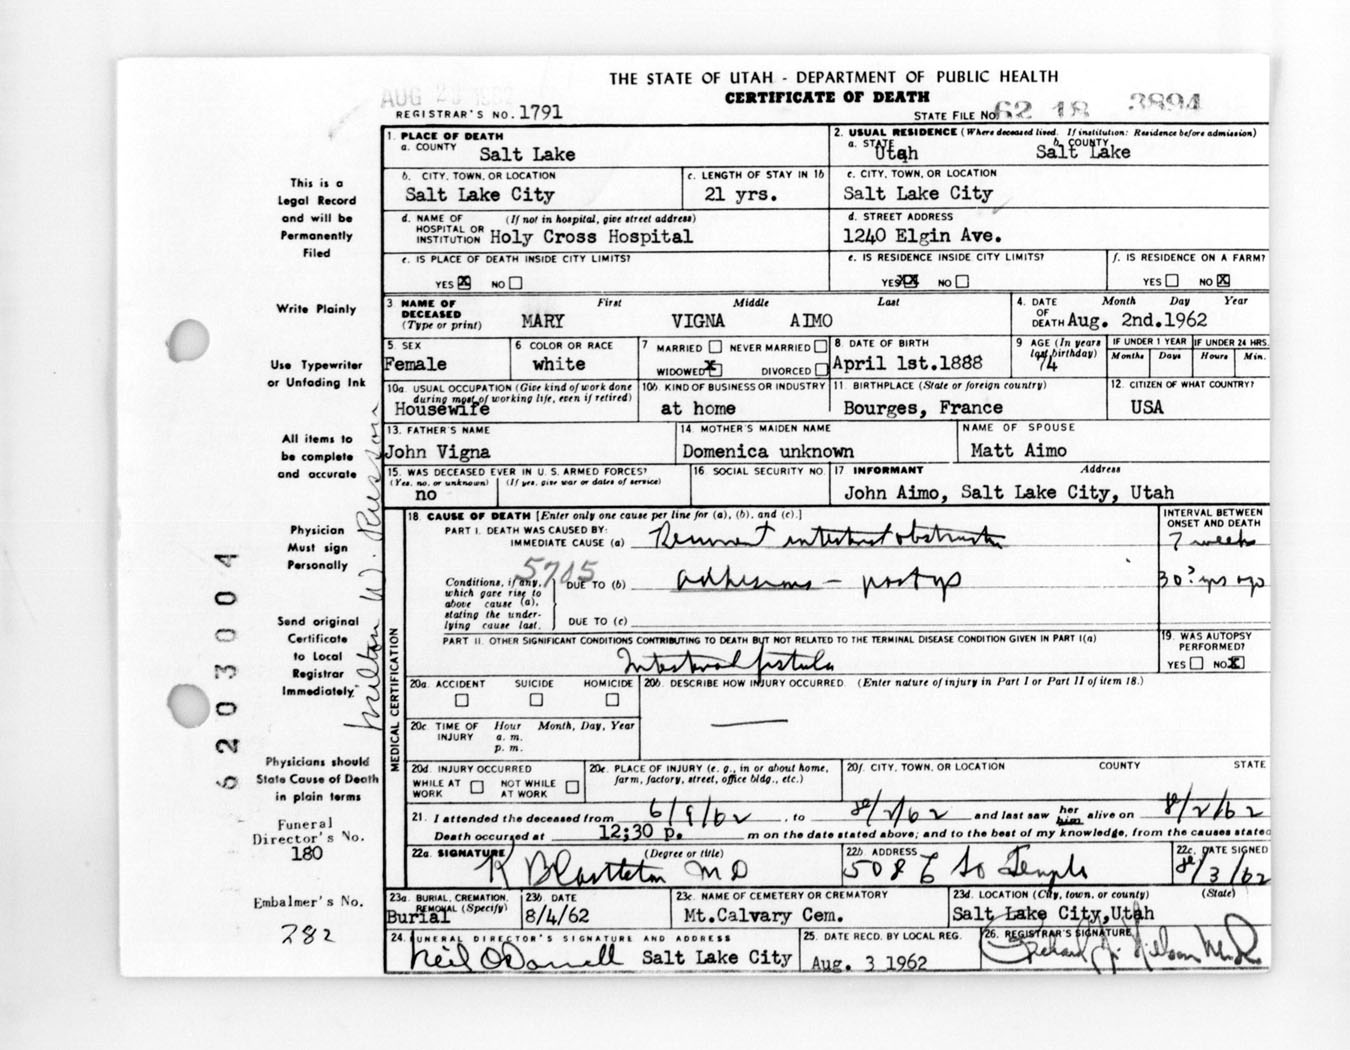 THE STATE OF UTAH - DEPARTMENT OF PUBLIC HEALTH
CERTIFICATE OF DEATH
AUG 23 1962
REGISTRAR'S NO. 1791
STATE FILE NO. 62 18 3894
1. PLACE OF DEATH
a. COUNTY Salt Lake
2. USUAL RESIDENCE (Where deceased lived. If institution: Residence before admission)
a. STATE Utah b. COUNTY Salt Lake
b. CITY, TOWN, OR LOCATION Salt Lake City
c. LENGTH OF STAY IN 1b 21 yrs.
c. CITY, TOWN, OR LOCATION Salt Lake City
d. NAME OF HOSPITAL OR INSTITUTION (If not in hospital, give street address) Holy Cross Hospital
d. STREET ADDRESS 1240 Elgin Ave.
e. IS PLACE OF DEATH INSIDE CITY LIMITS? YES X NO
e. IS RESIDENCE INSIDE CITY LIMITS? YES X NO
f. IS RESIDENCE ON A FARM? YES NO X
3 NAME OF DECEASED (Type or print) First Middle Last
MARY VIGNA AIMO
4. DATE OF DEATH Month Day Year
Aug. 2nd.1962
5. SEX Female
6 COLOR OR RACE white
7 MARRIED NEVER MARRIED WIDOWED X DIVORCED
8. DATE OF BIRTH April 1st.1888
9 AGE (In years last birthday) 74
IF UNDER 1 YEAR Months Days
IF UNDER 24 HRS. Hours Min.
10a. USUAL OCCUPATION (Give kind of work done during most of working life, even if retired) Housewife
10b. KIND OF BUSINESS OR INDUSTRY at home
11. BIRTHPLACE (State or foreign country) Bourges, France
12. CITIZEN OF WHAT COUNTRY? USA
13. FATHER'S NAME John Vigna
14. MOTHER'S MAIDEN NAME Domenica unknown
NAME OF SPOUSE Matt Aimo
15. WAS DECEASED EVER IN U. S. ARMED FORCES? (Yes, no, or unknown) (If yes, give war or dates of service) no
16. SOCIAL SECURITY NO.
17 INFORMANT Address
John Aimo, Salt Lake City, Utah
18. CAUSE OF DEATH [Enter only one cause per line for (a), (b), and (c).]
INTERVAL BETWEEN ONSET AND DEATH
PART I. DEATH WAS CAUSED BY:
IMMEDIATE CAUSE (a) Recurrent intestinal obstruction 7 weeks
5705
Conditions, if any, which gave rise to above cause (a), stating the underlying cause last.
DUE TO (b) adhesions - postop 30? yrs ago
DUE TO (c)
PART II. OTHER SIGNIFICANT CONDITIONS CONTRIBUTING TO DEATH BUT NOT RELATED TO THE TERMINAL DISEASE CONDITION GIVEN IN PART I(a)
Intestinal fistula
19. WAS AUTOPSY PERFORMED? YES NO X
MEDICAL CERTIFICATION
20a. ACCIDENT SUICIDE HOMICIDE
20b. DESCRIBE HOW INJURY OCCURRED. (Enter nature of injury in Part I or Part II of item 18.)
20c TIME OF INJURY Hour Month, Day, Year
a. m.
p. m.
20d. INJURY OCCURRED
WHILE AT WORK NOT WHILE AT WORK
20e. PLACE OF INJURY (e. g., in or about home, farm, factory, street, office bldg., etc.)
20f. CITY, TOWN, OR LOCATION COUNTY STATE
21. I attended the deceased from 6/9/62, to 8/2/62 and last saw her him alive on 8/2/62
Death occurred at 12:30 p. m on the date stated above; and to the best of my knowledge, from the causes stated
22a. SIGNATURE (Degree or title) K B Castleton MD
22b. ADDRESS 508 E So Temple
22c. DATE SIGNED 8/3/62
23a. BURIAL, CREMATION, REMOVAL (Specify) Burial
23b DATE 8/4/62
23c NAME OF CEMETERY OR CREMATORY Mt.Calvary Cem.
23d. LOCATION (City, town, or county) (State) Salt Lake City,Utah
24. FUNERAL DIRECTOR'S SIGNATURE AND ADDRESS Neil O'Donnell Salt Lake City
25. DATE RECD. BY LOCAL REG. Aug. 3 1962
26. REGISTRAR'S SIGNATURE
This is a
Legal Record
and will be
Permanently
Filed
Write Plainly
Use Typewriter
or Unfading Ink
All items to
be complete
and accurate
Physician
Must sign
Personally
Send original
Certificate
to Local
Registrar
Immediately.
Physicians should
State Cause of Death
in plain terms
Funeral
Director's No.
180
Embalmer's No.
282
Milton W. Russon
6203004